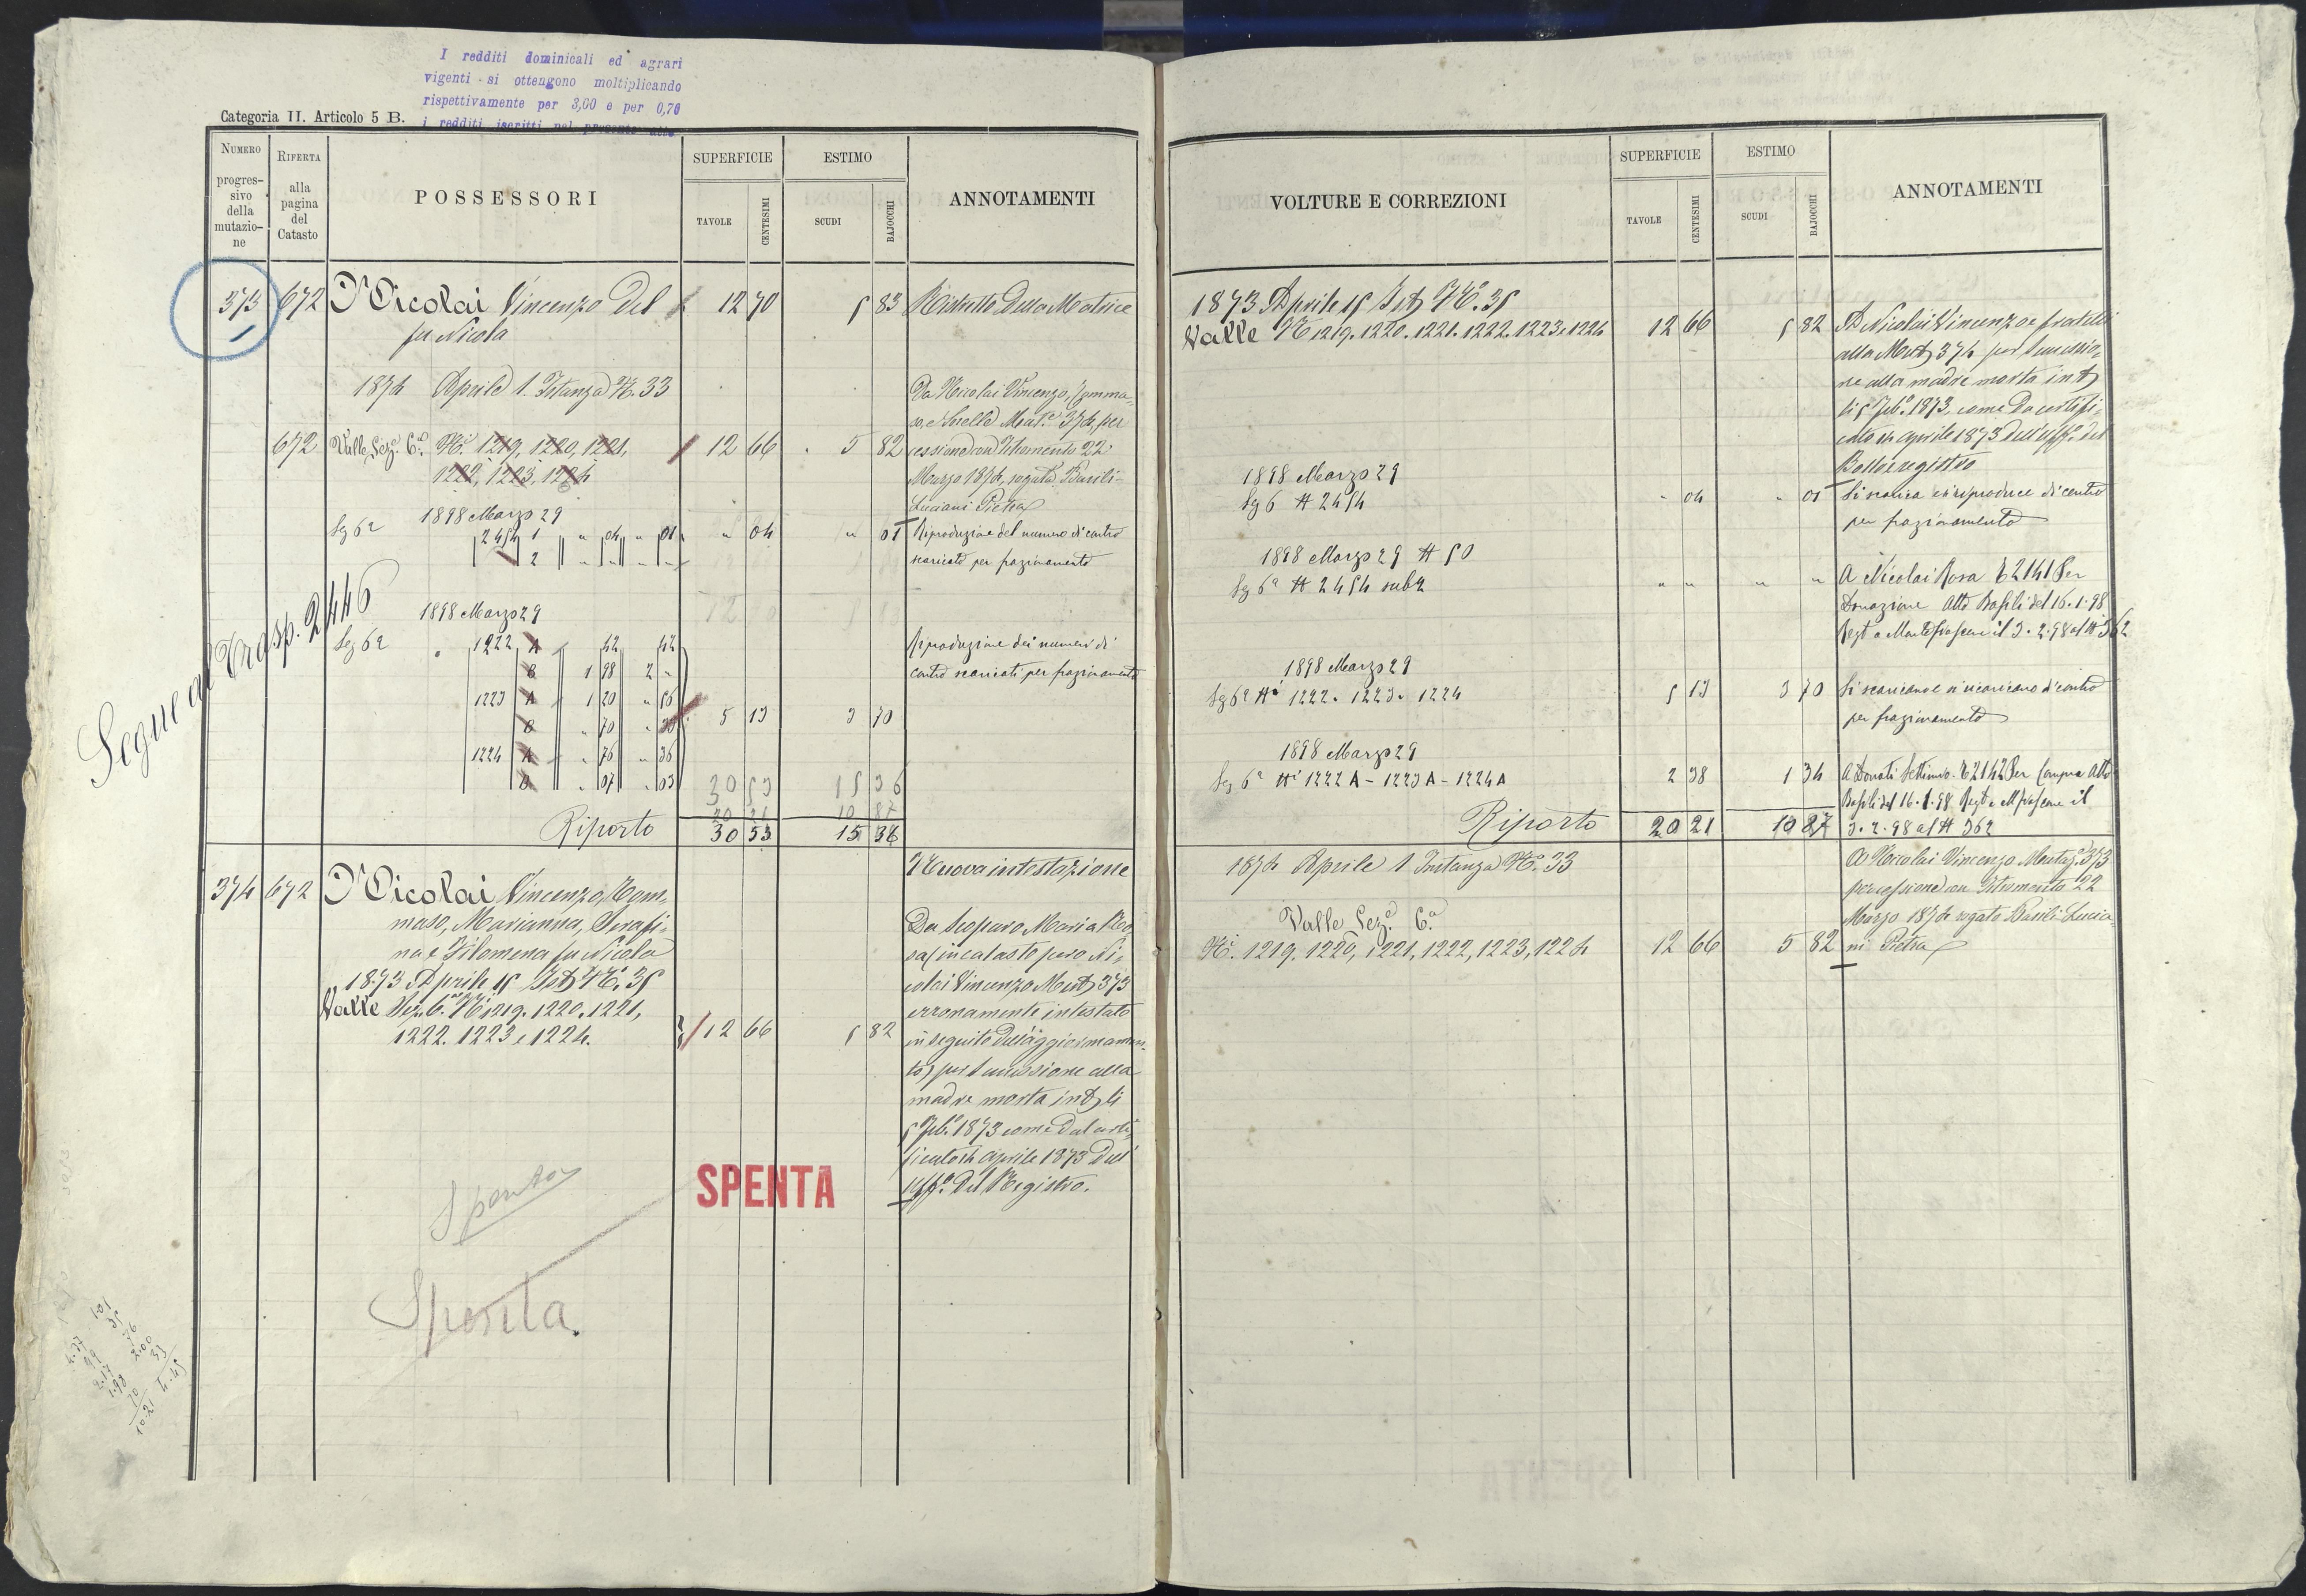 I redditi dominicali ed agrari
vigenti si ottengono moltiplicando
rispettivamente per 3,00 e per 0,70
i redditi iscritti nel presente
Categoria II. Articolo 5 B.
NUMERO progressivo della mutazione
RIFERTA alla pagina del Catasto
POSSESSORI
SUPERFICIE
TAVOLE
CENTESIMI
ESTIMO
SCUDI
BAJOCCHI
ANNOTAMENTI
373 672 Nicolai Vincenzo del 12 70 5 83 Ristretto della Matrice
fu Nicola
1874 Aprile 1. Istanza N. 33
Da Nicolai Vincenzo, Tomma-
so, e Sorelle Mut.e 374, per
672 Valle Sez.e 6.a N.i 1219, 1220, 1221, 12 66 5 82 cessione con Istromento 22
1222, 1223, 1224
Marzo 1874, rogato Basili-
Luciani Pietro
1898 Marzo 29
Sez 6a 2454 1 " 04 " 01 " 04 " 01 Riproduzione del numero di contro
2 " " " "
scaricato per frazionamento
Segue al Trasp. 2446
1898 Marzo 29
Sez 6a 1222 A " 42 " 42 Riproduzione dei numeri di
B 1 98 2 " contro scaricati per frazionamento
1223 A 1 20 " 56
B " 70 " 30 5 13 3 70
1224 A " 76 " 36
B " 07 " 03 30 53 15 36
20 21 10 87
Riporto 30 53 15 36
374 672 Nicolai Vincenzo, Tom-
maso, Marianna, Serafi-
na e Filomena fu Nicola
1873 Aprile 15 Ist N. 35
Valle Sez. 6.a N.i 1219. 1220. 1221,
1222. 1223 e 1224. 12 66 5 82
Nuova intestazione
Da Scoparo Maria Ro
sa (in catasto però Ni-
colai Vincenzo Mut 373
erronamente intestato
in seguito dell'aggiornamen-
to) per successione alla
madre morta int li
5 Feb. 1873 come dal certi-
ficato 14 Aprile 1873 dell'
Uff.o del Registro.
Spenta
SPENTA
Spenta.
VOLTURE E CORREZIONI
SUPERFICIE
TAVOLE
CENTESIMI
ESTIMO
SCUDI
BAJOCCHI
ANNOTAMENTI
1873 Aprile 15 Ist N. 35
Valle N. 1219. 1220. 1221. 1222. 1223. 1224 12 66 5 82 A Nicolai Vincenzo e fratelli
alla Mut 374 per successio-
ne alla madre morta int
li 5 Feb.o 1873, come da certifi-
cato 14 aprile 1873 dell'Uff.o del
Bollo e registro
1898 Marzo 29
Sez 6 # 2454 " 04 " 01 Si scarica e si riproduce di contro
per frazionamento
1898 Marzo 29 # 50
Sez 6a # 2454 sub 2 " " " " A Nicolai Rosa T 2141 Per
Donazione Atto Basili del 16.1.98
Regt a Montefiascone il 3.2.98 al # 362
1898 Marzo 29
Sez 6a #i 1222. 1223. 1224 5 13 3 70 Si scaricano e si ricaricano di contro
per frazionamento
1898 Marzo 29
Sez 6a #i 1222 A - 1223 A - 1224 A 2 38 1 34 A Donati Settimio T 2142 Per Compra Atto
Basili del 16.1.98 Regt a Mfiascone il
3.2.98 al # 362
Riporto 20 21 10 87
1874 Aprile 1 Instanza N. 33
Valle Sez.e 6.a
N.i 1219, 1220, 1221, 1222, 1223, 1224 12 66 5 82
A Nicolai Vincenzo Mutaz.e 373
per cessione con Istromento 22
Marzo 1874 rogato Basili Lucia-
ni Pietro